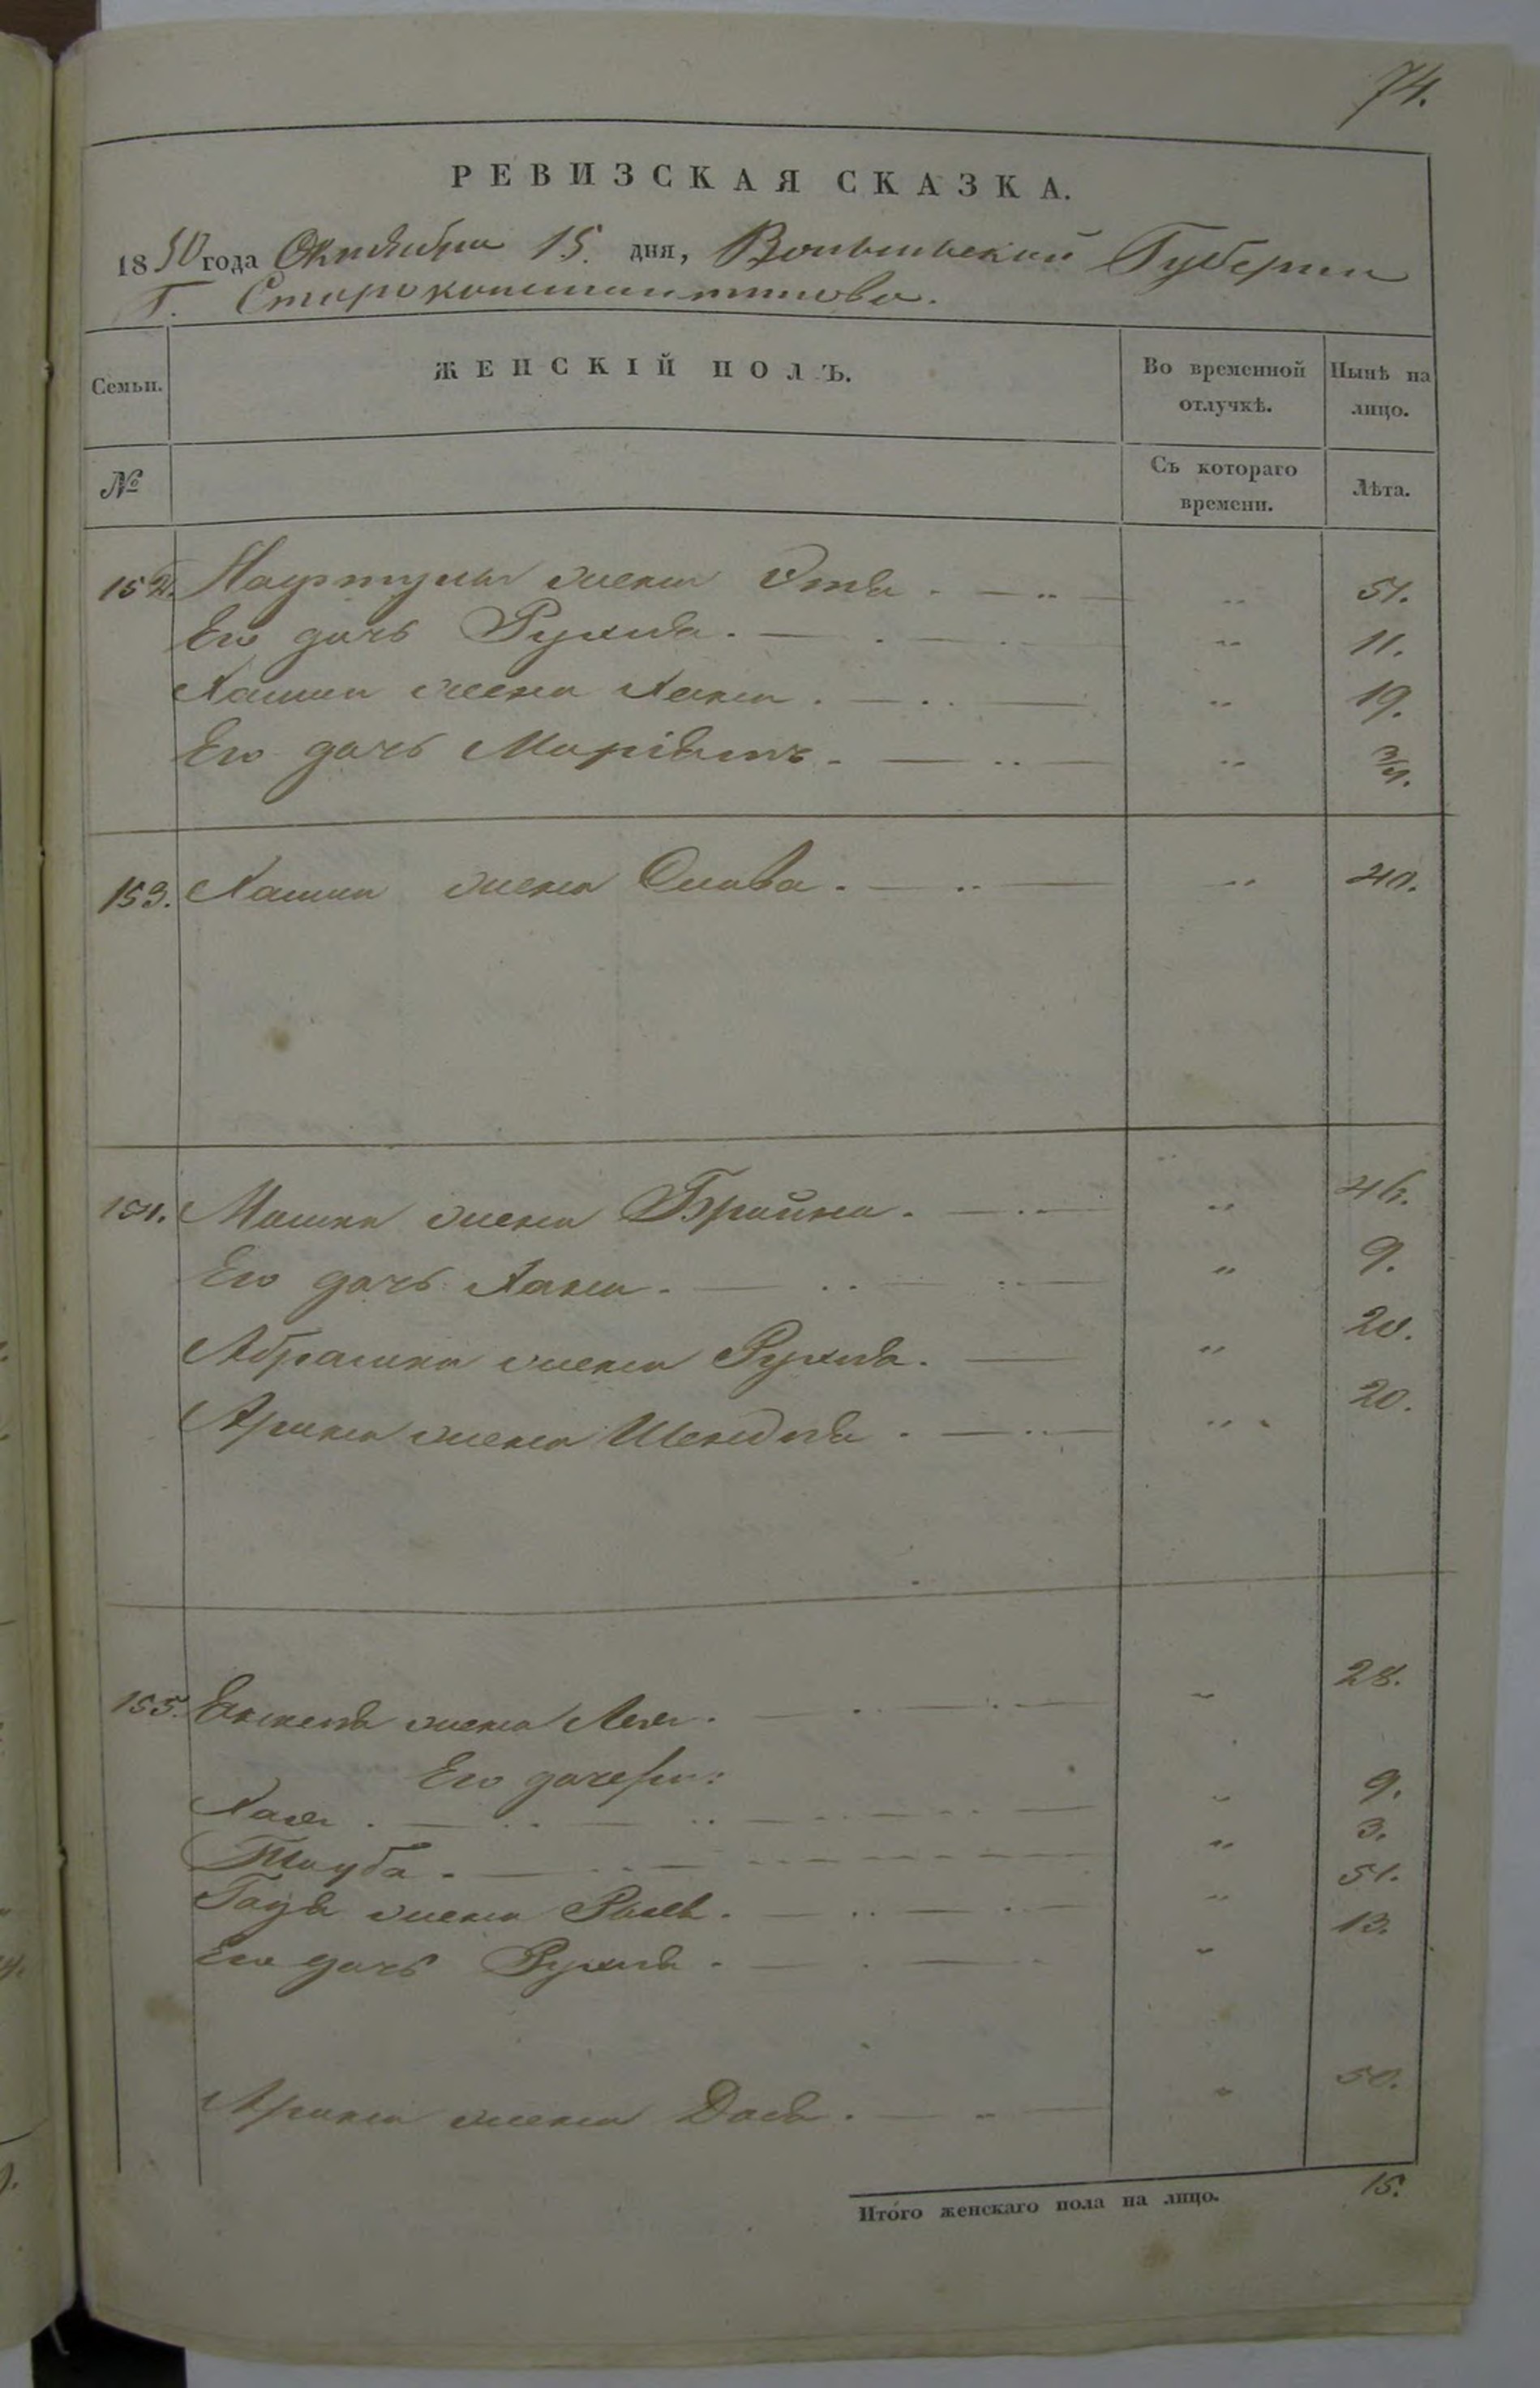 74.
РЕВИЗСКАЯ СКАЗКА.
1850 года Октября 15. дня, Волынской Губернии
Г. Староконстантинова.
Семьи.
ЖЕНСКІЙ ПОЛЪ.
Во временной отлучкѣ.
Нынѣ на лицо.
№
Съ котораго времени.
Лѣта.
152. жена 51.
Его дочь Рухля. 11.
Хаима жена Хана. 19.
Его дочь Маріямъ. 3/4.
153. Хаима жена Слава. 40.
154. Мошка жена Брайна. 46.
Его дочь Хана. 9.
Абрамка жена Рухля. 20.
Арика жена Шендля. 20.
155. жена Лея. 28.
Его дочери:
Хая. 9.
Тауба. 3.
жена 51.
Его дочь Рухля. 13.
Арика жена 50.
Итого женскаго пола на лицо. 15.